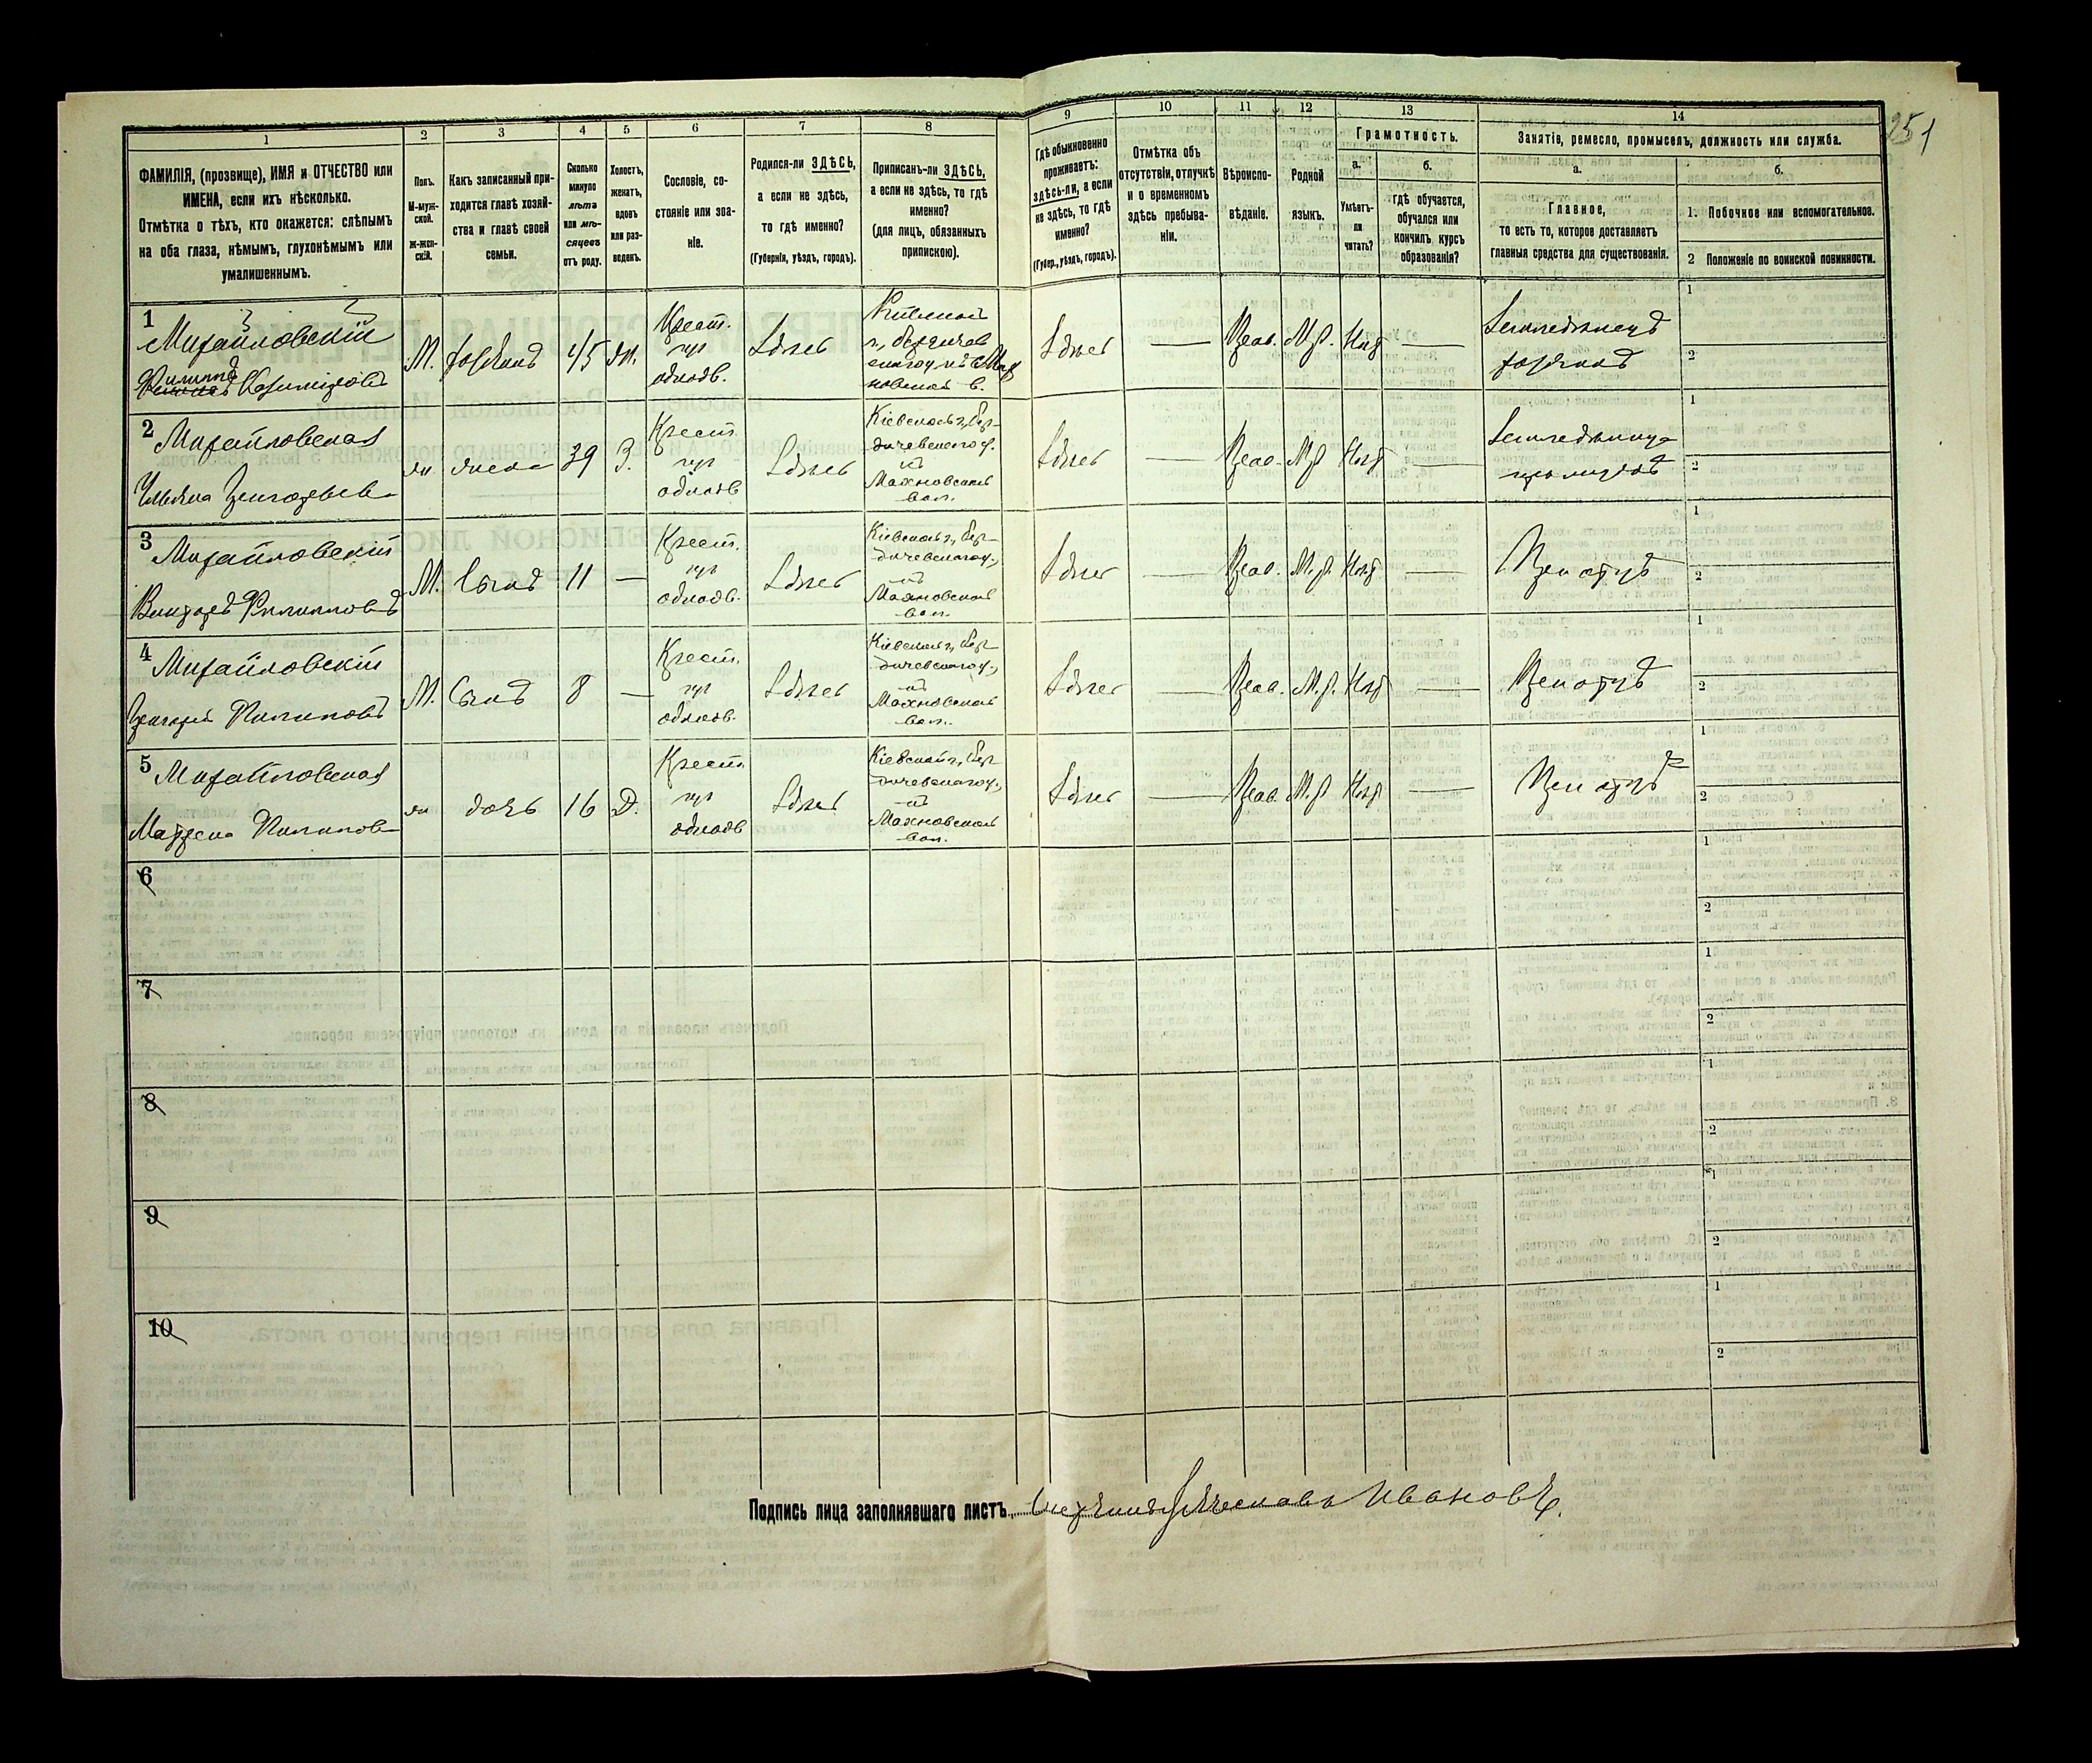 251
1
2
3
4
5
6
7
8
9
10
11
12
13
14
ФАМИЛІЯ, (прозвище), ИМЯ и ОТЧЕСТВО или
ИМЕНА, если ихъ нѣсколько.
Отмѣтка о тѣхъ, кто окажется: слѣпымъ
на оба глаза, нѣмымъ, глухонѣмымъ или
умалишеннымъ.
Полъ.
М-муж-
ской.
Ж-жен-
скій.
Какъ записанный при-
ходится главѣ хозяй-
ства и главѣ своей
семьи.
Сколько
минуло
лѣтъ
или мѣ-
сяцевъ
отъ роду.
Холостъ,
женатъ,
вдовъ
или раз-
веденъ.
Сословіе, со-
стояніе или зва-
ніе.
Родился-ли ЗДѢСЬ,
а если не здѣсь,
то гдѣ именно?
(Губернія, уѣздъ, городъ).
Приписанъ-ли ЗДѢСЬ,
а если не здѣсь, то гдѣ
именно?
(для лицъ, обязанныхъ
припискою).
Гдѣ обыкновенно
проживаетъ:
здѣсь-ли, а если
не здѣсь, то гдѣ
именно?
(Губер., уѣздъ, городъ).
Отмѣтка объ
отсутствіи, отлучкѣ
и о временномъ
здѣсь пребыва-
ніи.
Вѣроиспо-
вѣданіе.
Родной
языкъ.
Грамотность.
а.
Умѣетъ-
ли
читать?
б.
Гдѣ обучается,
обучался или
кончилъ курсъ
образованія?
Занятіе, ремесло, промыселъ, должность или служба.
а.
Главное,
то есть то, которое доставляетъ
главныя средства для существованія.
б.
1. Побочное или вспомогательное.
2 Положеніе по воинской повинности.
1
Михайловскій
Филиппъ
М. хозяинъ 45 Ж.
Крест.
однодв.
Здѣсь
Кіевской
г., Бердичев
Здѣсь — Прав. М.р. Нѣтъ —
Земледѣлецъ
хозяинъ
1
2
2
Михайловская
ж жена 39 З.
Крест.
однодв
Здѣсь
Кіевской г., Бер-
дичевскаго у.
Махновской
вол.
Здѣсь — Прав. М.р. Нѣтъ —
1
2
3
Михайловскій
Филипповъ
М. Сынъ 11 —
Крест.
одподв.
Здѣсь
Кіевской г., Бер-
дичевскаго у.,
Махновской
вол.
Здѣсь — Прав. М.р. Нѣтъ —
При отцѣ
1
2
4
Михайловскій
Григорій Филиповъ
М. Сынъ 8 —
Крест.
одподв.
Здѣсь
Кіевской г., Бер-
дичевскаго у.,
Махновской
вол.
Здѣсь — Прав. М.р. Нѣтъ —
При отцѣ
1
2
5
Михайловская
ж дочь 16 Д.
Крест
одподв
Здѣсь
Кіевской г., Бер-
дичевскаго у.,
Махновской
вол.
Здѣсь — Прав. М.р. Нѣтъ —
При отцѣ
1
2
6
1
2
7
1
2
8
1
2
9
1
2
10
1
2
Подпись лица заполнявшаго листъ